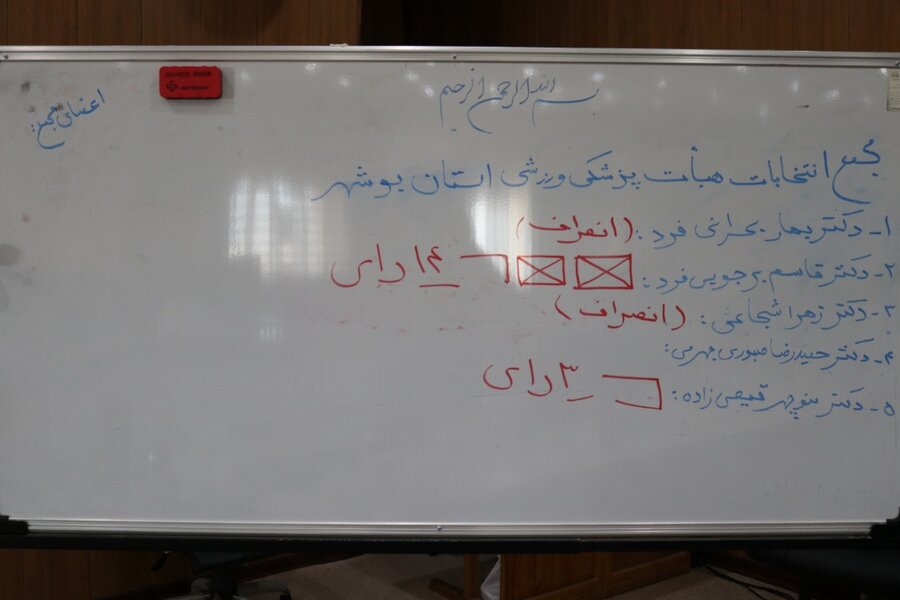 بسم الله الرحمن الرحیم
اعضای مجمع:
مجمع انتخابات هیأت پزشکی ورزشی استان بوشهر
۱- دکتر بهار بحرانی فرد: (انصراف)
۲- دکتر قاسم برجویی فرد: ۱۴ رای
۳- دکتر زهرا شجاعی: (انصراف)
۴- دکتر حمیدرضا صبوری جهرمی:
۵- دکتر منوچهر قمیصی زاده: ۳ رای
MAGNETIC ERASER
WHITEBOARD